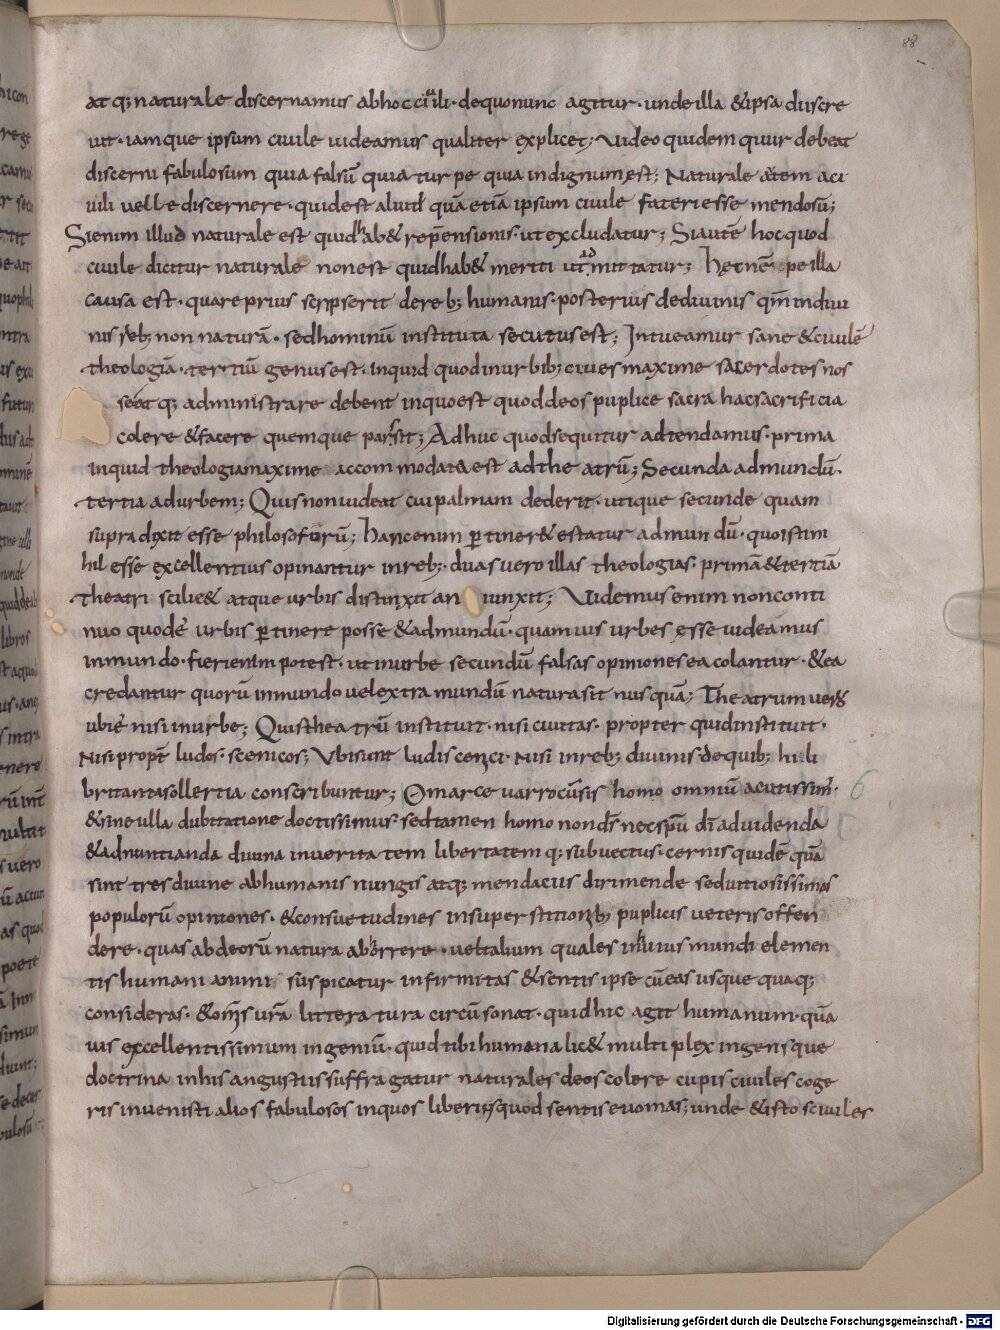 88
atq; naturale discernamus abhoc ciuili· dequonunc agitur· unde illa &ipsa discre
uit· iamque ipsum ciuile uideamus qualiter explicet; Video quidem quur debeat
discerni fabulosum quia falsū quia turpe quia indignum est; Naturale autem aci
uili uelle discernere· quid est aliud quā etiā ipsum ciuile fateri esse mendosū;
Sienim illud naturale est quid hab& rep̄ensionis· utexcludatur; Siautē hocquod
ciuile dicitur naturale non est quid hab& meriti ut admittatur; Hec nēpe illa
causa est· quare prius scripserit dereb; humanis· posterius dediuinis qm̄ indiui
nis reb; non naturā· sedhominū instituta secutus est; Intueamur sane &ciuilē
theologiā· tertiū genus est· inquid quod inurbib; ciues maxime sacerdotes nos
seatq; administrare debent inquo est quod deos puplice sacra hac sacrificia
colere &facere quemque par sit; Adhuc quodsequitur adtendamus· prima
inquid theologia maxime accommodata est ad theatrū; Secunda admundū·
tertia adurbem; Quis nonuideat cui palmam dederit· utique secunde quam
supra dixit esse philosoforū; Hanc enim ptiner& estatur admundū· quo isti ni
hil esse excellentius opinantur inreb;· duas uero illas theologias· primā &tertiā
theatri scilic& atque urbis distinxit an iunxit; Videmus enim non conti
nuo quodē urbis ptinere posse &admundū· quamuis urbes esse uideamus
inmundo· fieri enim potest· ut inurbe secundū falsas opiniones ea colantur· &ea
credantur quorū inmundo uel extra mundū natura sit nusquā; Theatrum uer&
ubiē nisi inurbe; Quis theatrū instituit· nisi ciuitas· propter quid instituit·
Nisi propt̄ ludos· scenicos; Vbi sunt ludi scenici· Nisi inreb; diuinis de quib; hi li
bri tanta sollertia conscribuntur; O marce uarro cū sis homo omniū acutissim̄·
&sine ulla dubitatione doctissimus· sed tamen homo non ds̄ nec spū dī aduidenda
&adnuntianda diuina inueritatem libertatemq; subuectus· cernis quidē quā
sint tres diuine abhumanis nungis atq; mendaciis dirimende sed uitiosissimas
populorū opiniones· &consuetudines insuperstitionib; puplicis ueteris offen
dere· quas ab deorū natura abhorrere· uel talium quales inhuius mundi elemen
tis humani animi suspicatur infirmitas &sentis ipse cū eas usque quaq;
consideras· &om̄is urā litteratura circūsonat· quid hic agit humanum· quā
uis excellentissimum ingeniū· quid tibi humana lic& multiplex ingensque
doctrina inhis angustiis suffragatur naturales deos colere cupis ciuiles coge
ris inuenisti alios fabulosos inquos liberius quod sentis euomas; unde &istos ciuiles
Digitalisierung gefördert durch die Deutsche Forschungsgemeinschaft - DFG